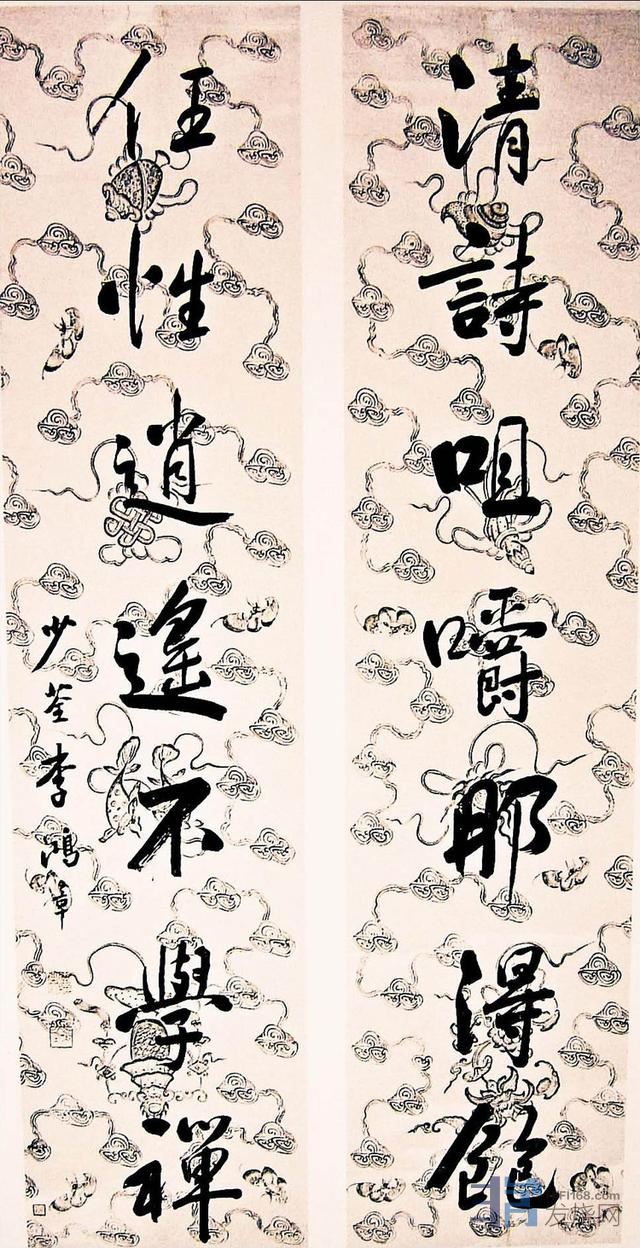 清詩咀嚼那得飽
任性逍遙不學禪
少荃李鴻章
发烧网